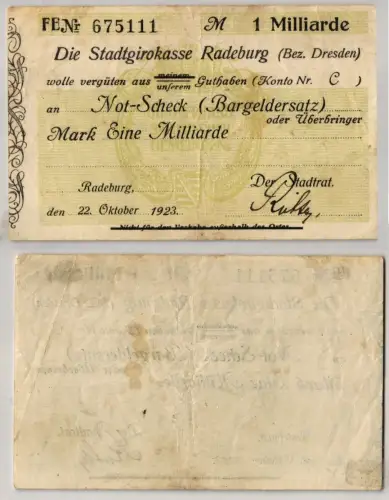 FB№ 675111 M 1 Milliarde
Die Stadtgirokasse Radeburg (Bez. Dresden)
wolle vergüten aus meinem Guthaben (Konto Nr. C )
unserem
an Not-Scheck (Bargeldersatz)
oder Überbringer
Mark Eine Milliarde
Radeburg, Der Stadtrat.
den 22. Oktober 1923.
Nicht für den Verkehr außerhalb des Ortes